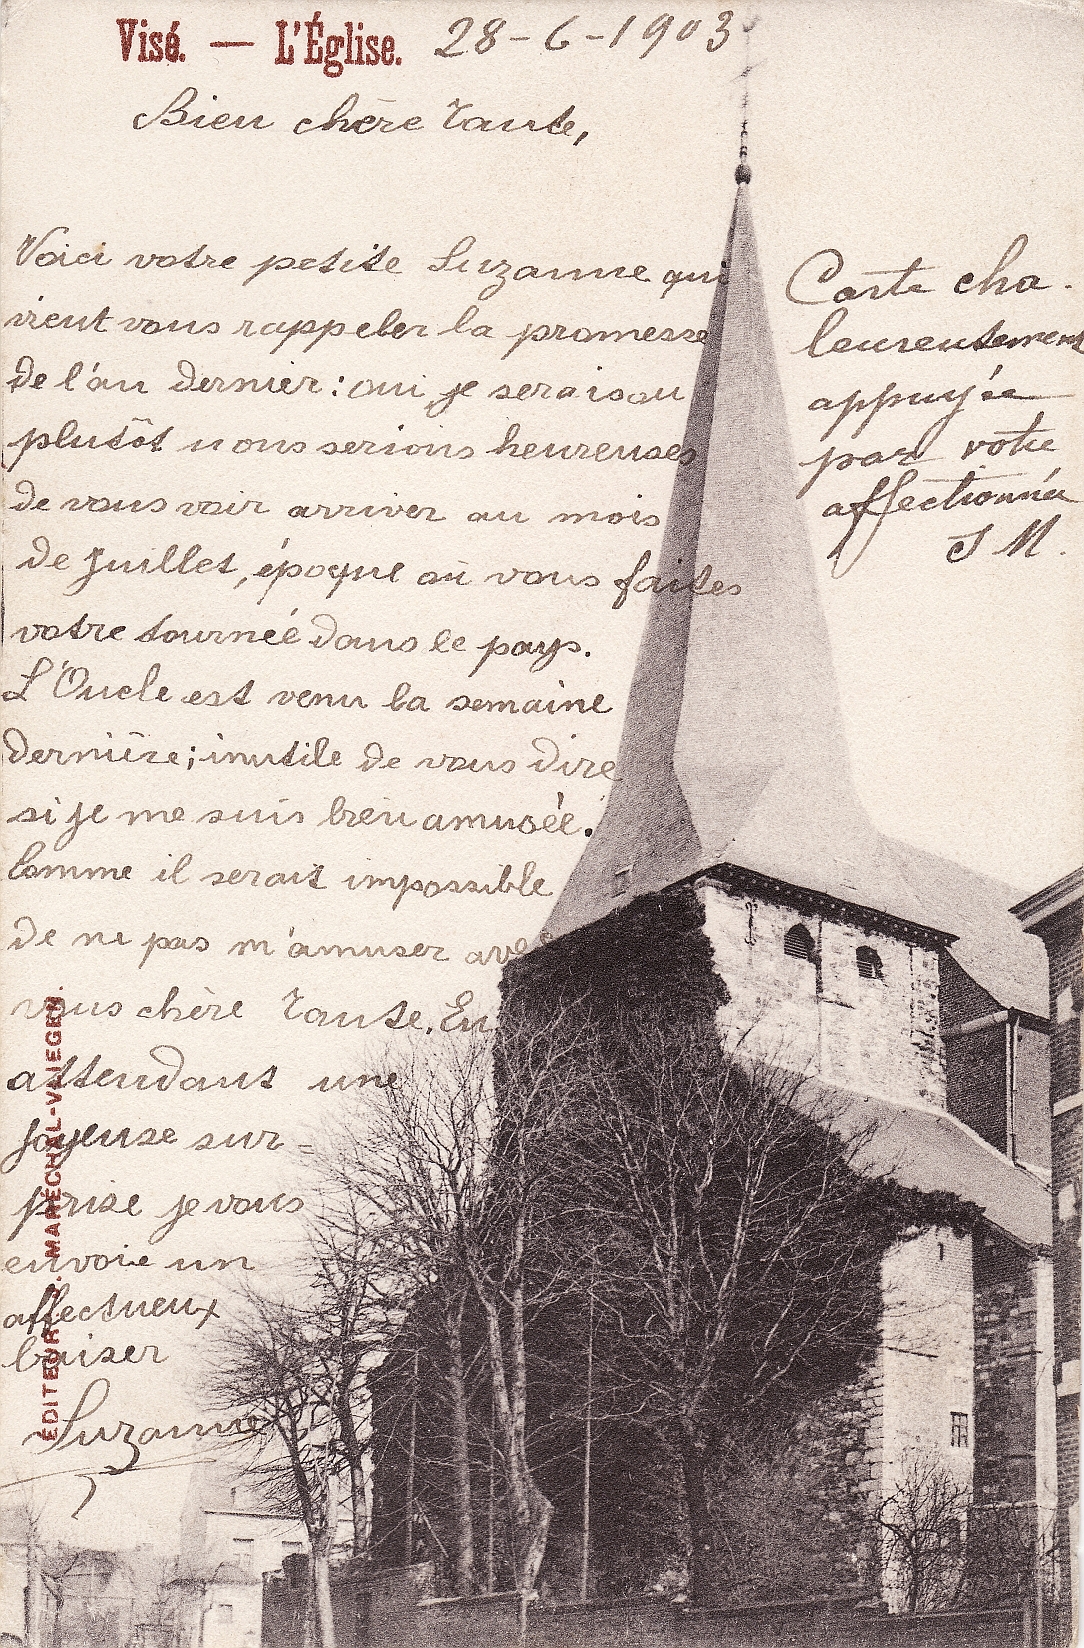 Visé. — L'Église. 28-6-1903
Bien chère Tante,
Voici votre petite Suzanne qui
vient vous rappeler la promesse
de l'an dernier: oui je serais ou
plutôt nous serions heureuses
de vous voir arriver au mois
de Juillet, époque où vous faites
votre tournée dans le pays.
L'Oncle est venu la semaine
dernière; inutile de vous dire
si je me suis bien amusée.
Comme il serait impossible
de ne pas m'amuser avec
vous chère Tante. En
attendant une
joyeuse sur-
prise je vous
envoie un
affectueux
baiser
Suzanne
Carte cha-
leureusement
appuyée
par votre
affectionnée
J M.
ÉDITEUR MARÉCHAL-VLIEGEN